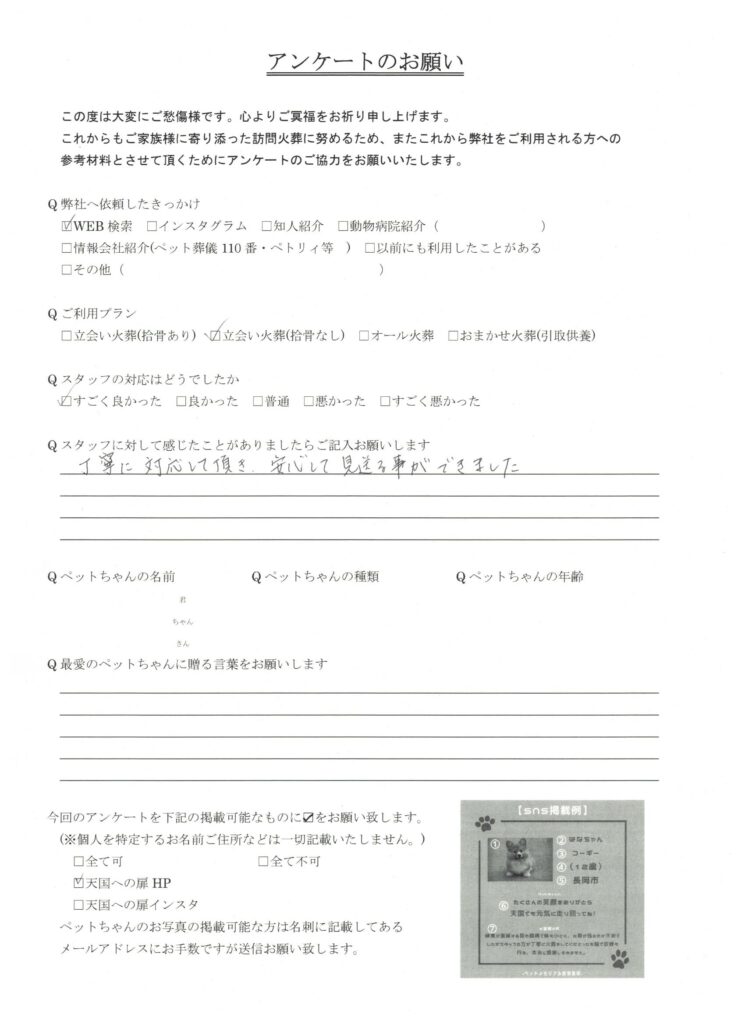 アンケートのお願い
この度は大変にご愁傷様です。心よりご冥福をお祈り申し上げます。
これからもご家族様に寄り添った訪問火葬に努めるため、またこれから弊社をご利用される方への
参考材料とさせて頂くためにアンケートのご協力をお願いいたします。
Q 弊社へ依頼したきっかけ
☑WEB 検索 □インスタグラム □知人紹介 □動物病院紹介（ ）
□情報会社紹介(ペット葬儀 110 番・ペトリィ等 ） □以前にも利用したことがある
□その他（ ）
Q ご利用プラン
□立会い火葬(拾骨あり) ☑立会い火葬(拾骨なし) □オール火葬 □おまかせ火葬(引取供養)
Q スタッフの対応はどうでしたか
☑すごく良かった □良かった □普通 □悪かった □すごく悪かった
Q スタッフに対して感じたことがありましたらご記入お願いします
丁寧に対応して頂き、安心して見送る事ができました
Q ペットちゃんの名前 Q ペットちゃんの種類 Q ペットちゃんの年齢
君
ちゃん
さん
Q 最愛のペットちゃんに贈る言葉をお願いします
今回のアンケートを下記の掲載可能なものに☑をお願い致します。
(※個人を特定するお名前ご住所などは一切記載いたしません。)
□全て可 □全て不可
☑天国への扉 HP
□天国への扉インスタ
ペットちゃんのお写真の掲載可能な方は名刺に記載してある
メールアドレスにお手数ですが送信お願い致します。
【sns掲載例】
① ② はなちゃん
③ コーギー
④ (12歳)
⑤ 長岡市
⑥ たくさんの笑顔をありがとう
天国でも元気に走り回ってね！
⑦